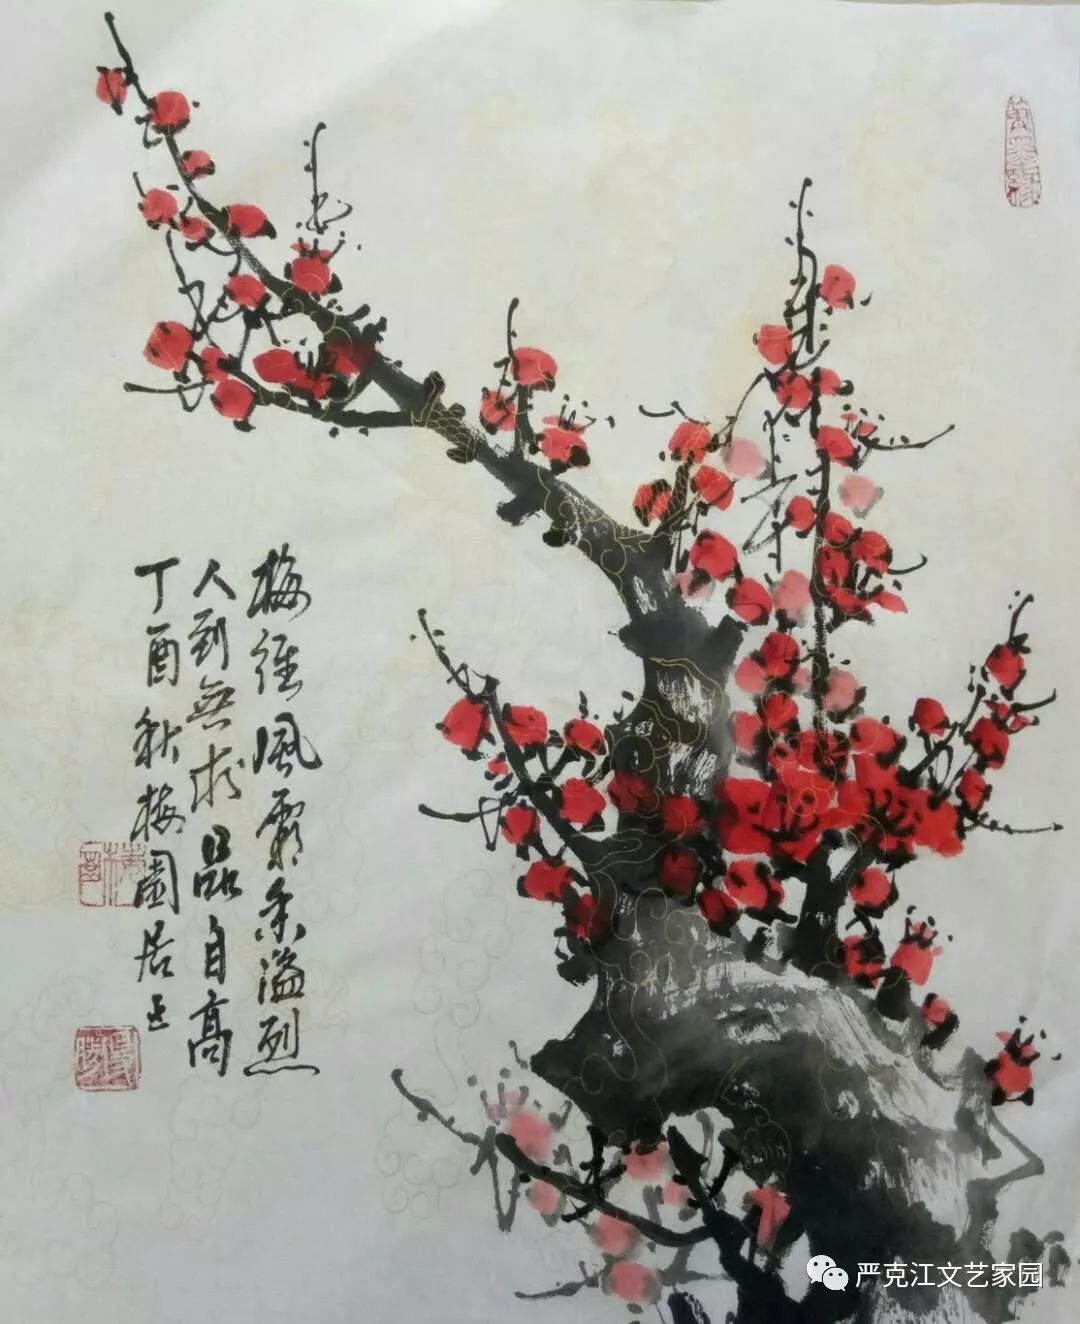 梅经风霜香溢烈
人到無求品自高
丁酉秋梅園居士
严克江文艺家园